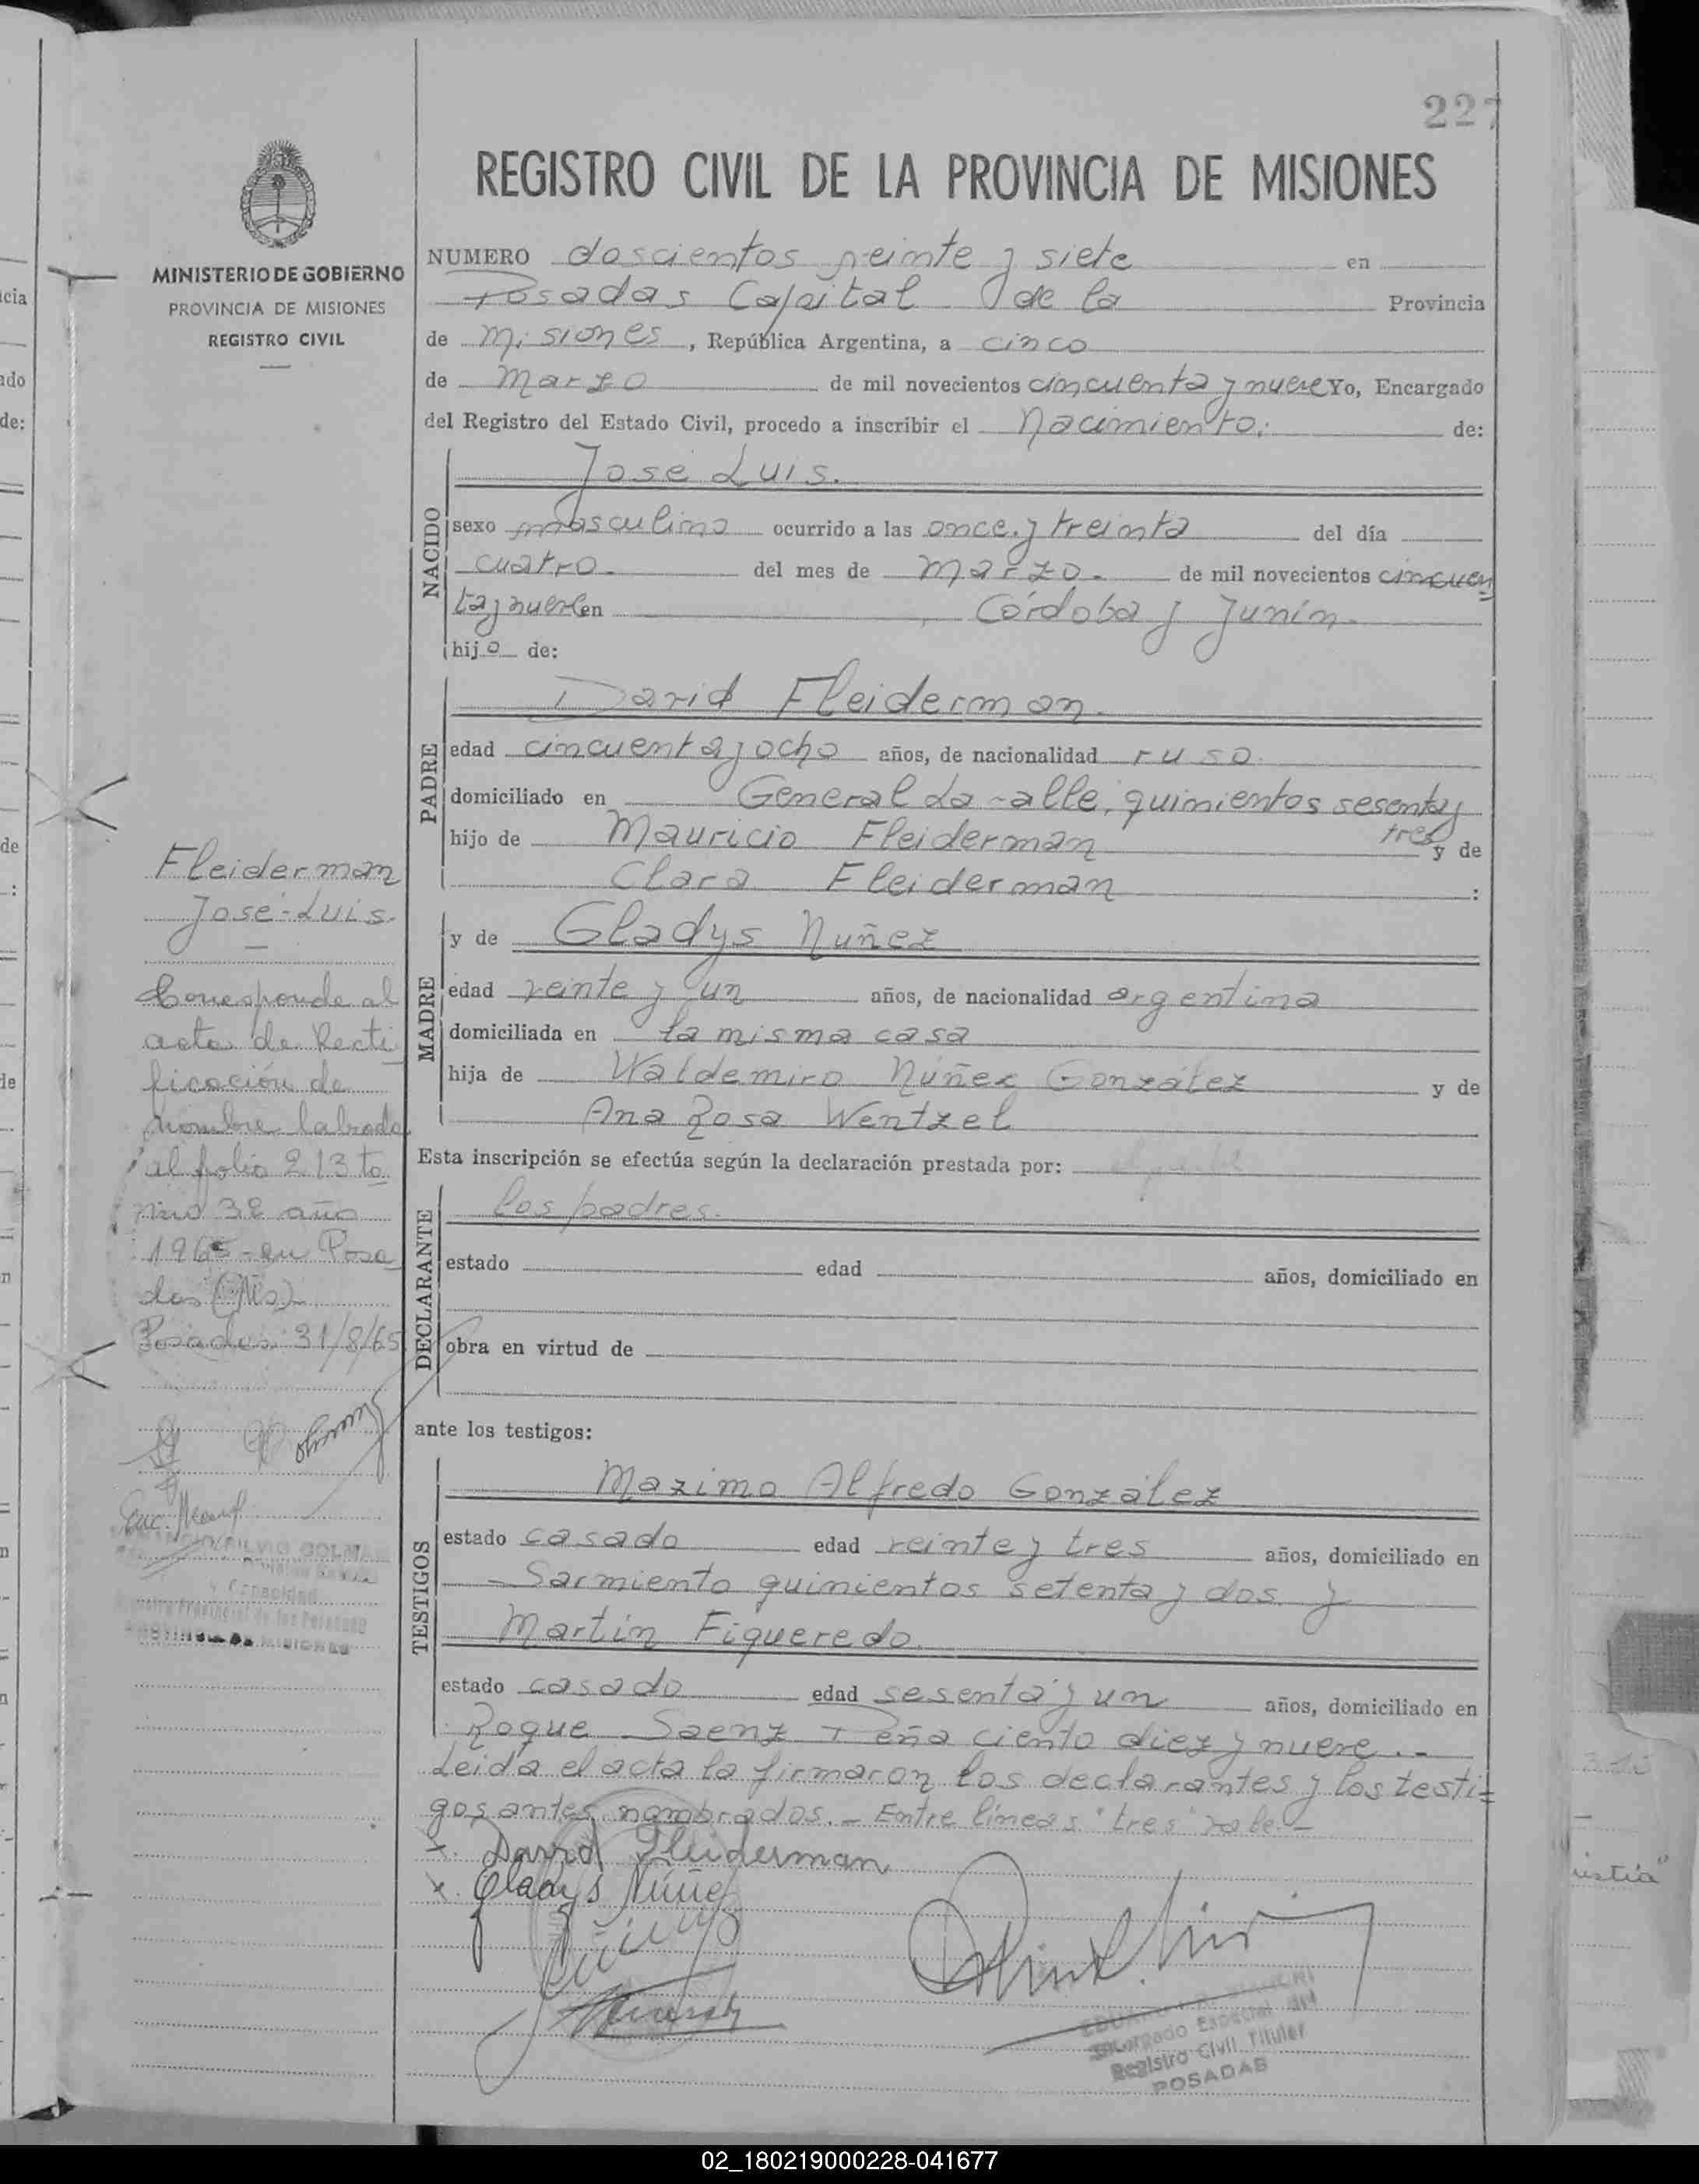 227
REGISTRO CIVIL DE LA PROVINCIA DE MISIONES
MINISTERIO DE GOBIERNO
PROVINCIA DE MISIONES
REGISTRO CIVIL
NUMERO doscientos veinte y siete en
Posadas Capital de la Provincia
de Misiones, República Argentina, a cinco
de Marzo de mil novecientos cincuenta y nueve Yo, Encargado
del Registro del Estado Civil, procedo a inscribir el Nacimiento. de:
NACIDO
José Luis.
sexo masculino ocurrido a las once y treinta del día
cuatro. del mes de Marzo. de mil novecientos cincuen
ta y nueve en Córdoba y Junín.
hijo de:
PADRE
David Fleiderman.
edad cincuenta y ocho años, de nacionalidad ruso.
domiciliado en General La-alle, quinientos sesenta y
tres
hijo de Mauricio Fleiderman y de
Clara Fleiderman :
MADRE
y de Gladys Nuñez
edad veinte y un años, de nacionalidad argentina
domiciliada en la misma casa
hija de Waldemiro Núñez González y de
Ana Rosa Wentzel
Esta inscripción se efectúa según la declaración prestada por:
DECLARANTE
los padres.
estado edad años, domiciliado en
obra en virtud de
ante los testigos:
TESTIGOS
Maximo Alfredo González
estado casado edad veinte y tres años, domiciliado en
Sarmiento quinientos setenta y dos y
Martín Figueredo.
estado casado edad sesenta y un años, domiciliado en
Roque Saenz Peña ciento diez y nueve.-
Leída el acta la firmaron los declarantes y los testi=
gos antes nombrados.- Entre líneas "tres" vale.-
x. David Fleiderman
x. Gladys Núñez
Encargado Especial
Registro Civil Titular
POSADAS
Fleiderman
José-Luis.
Corresponde al
acta de Recti
ficación de
nombre labrada
al folio 213 to
mo 3º año
1965-en Posa
das (Mis)
Posadas 31/8/65
y Capacidad
Registro Provincial de las Personas
02_180219000228-041677